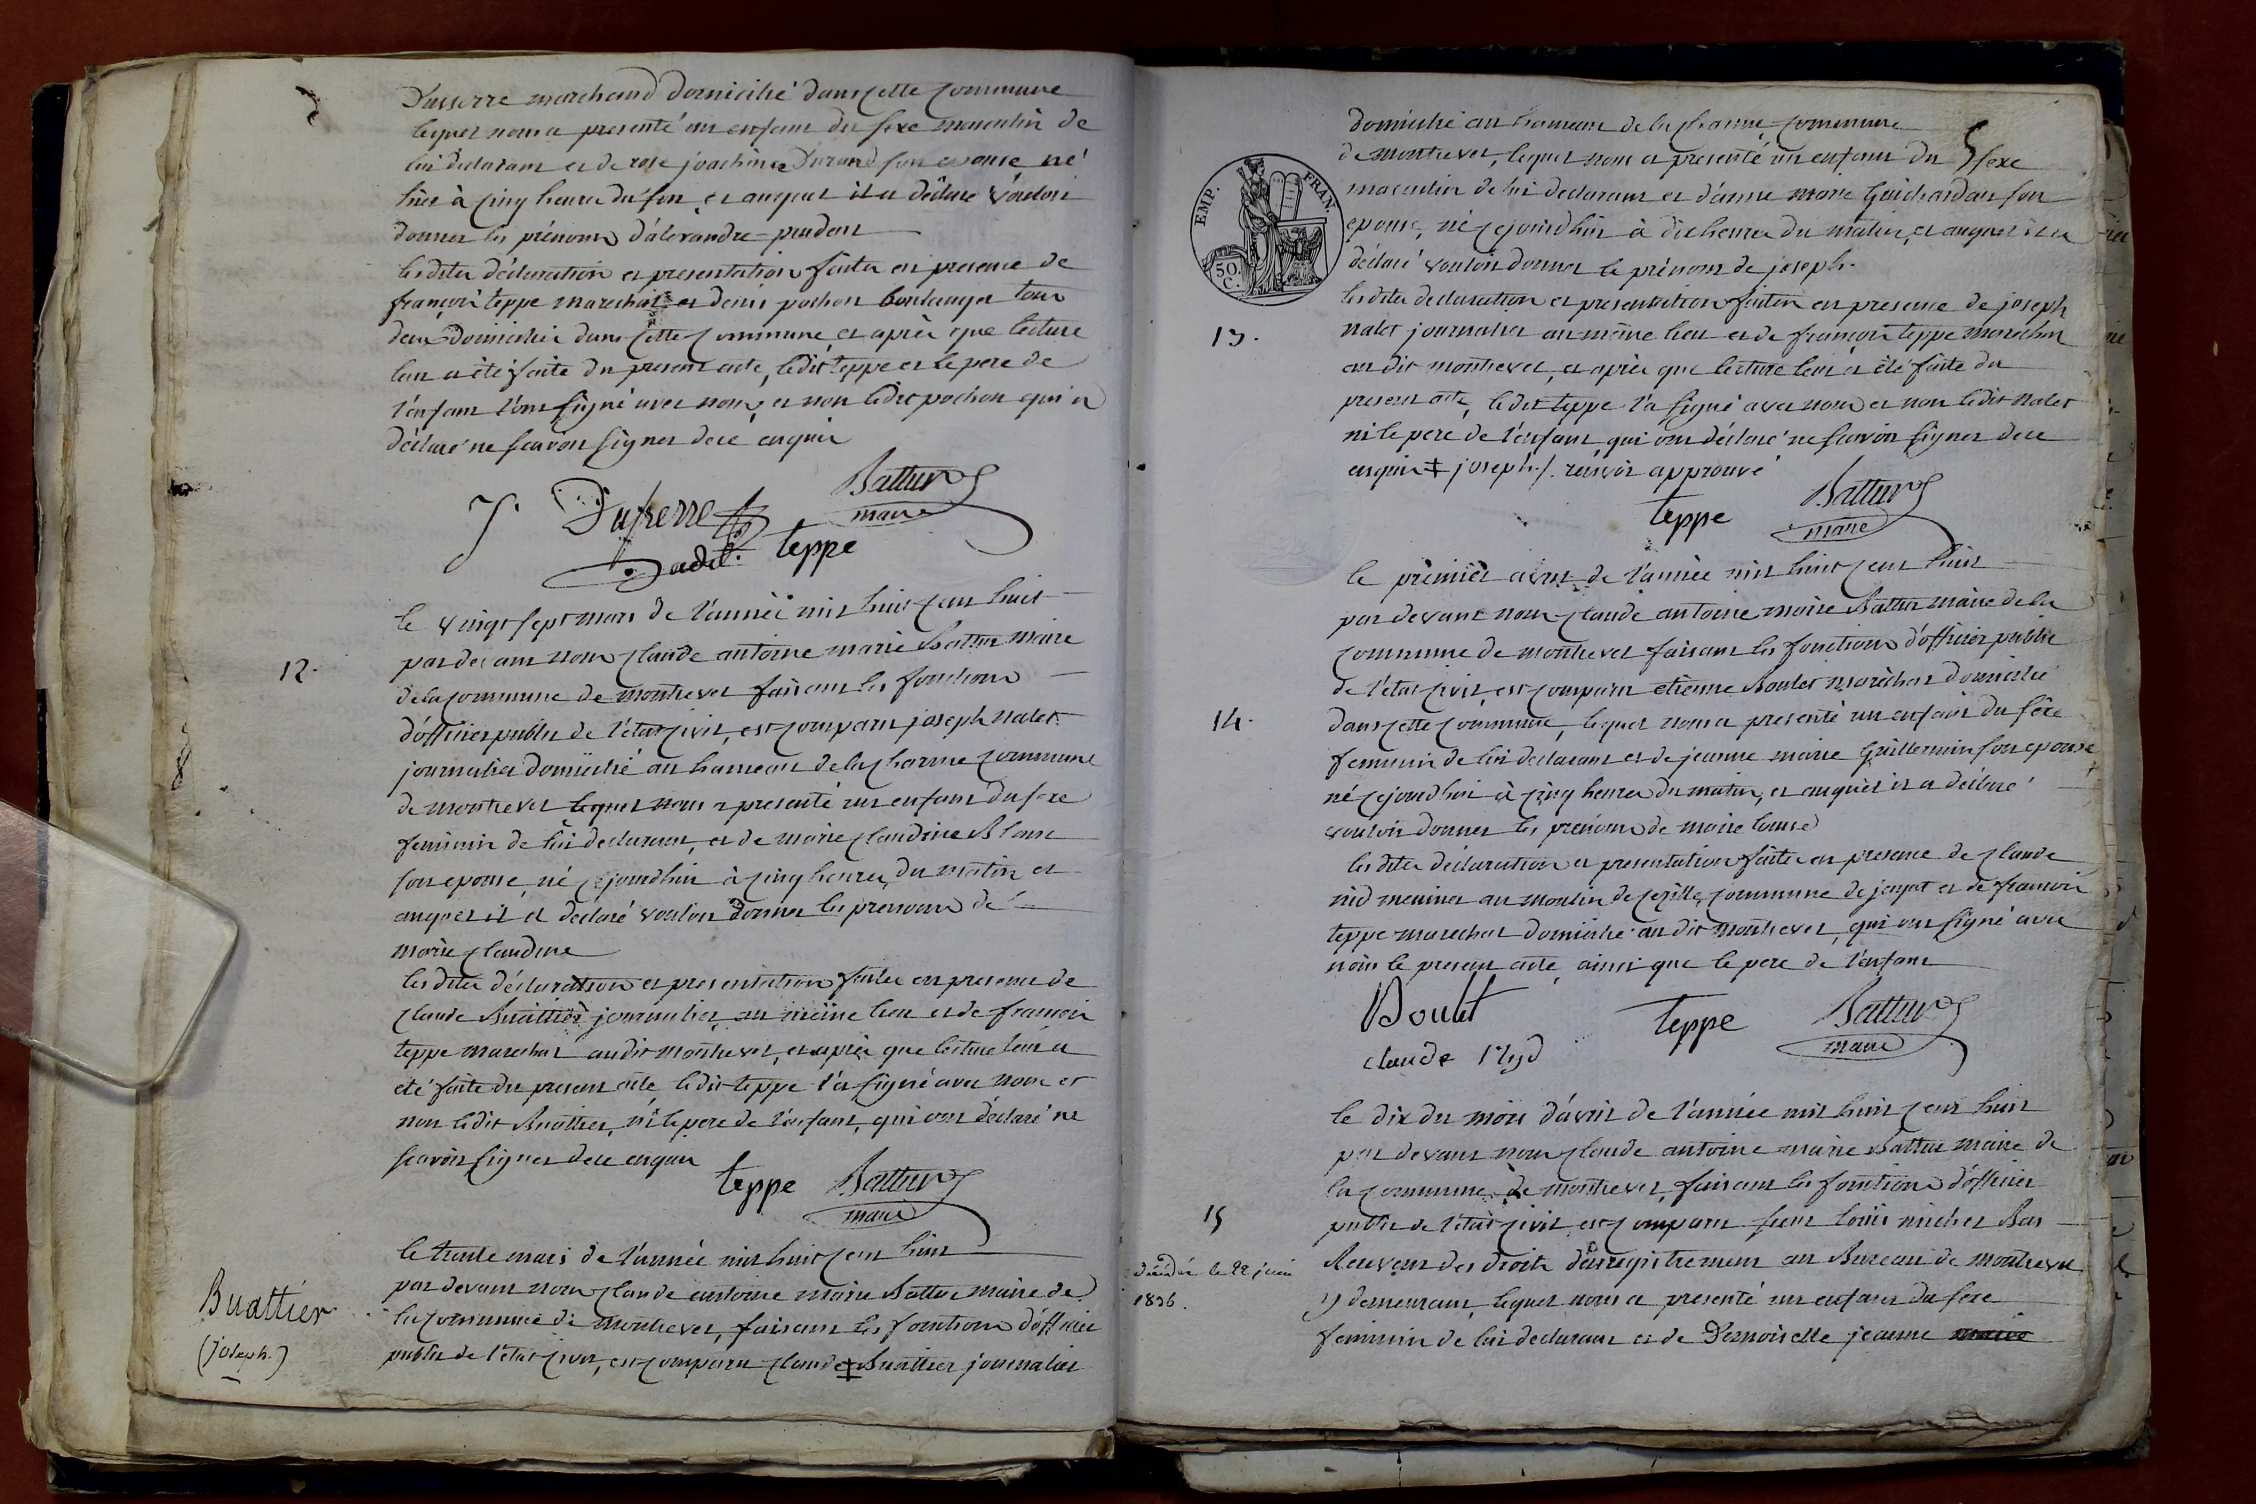 Dusserre marchand domicilié dans cette commune
lequel nous a presenté un enfant du sexe masculin de
lui declarant et de rose joachine Durand son epouse né
hier à cinq heure du soir, et auquel il a déclaré vouloir
donner les prénoms d'alexandre prudent
les dites déclaration et presentation faites en presence de
françois teppe marechal et denis pochon boulanger tous
deux domiciliés dans cette commune et après que lecture
leur a été faite du present acte, ledit teppe et le pere de
l'enfant l'ont signé avec nous, et non ledit pochon qui a
déclaré ne scavoir signer de ce enquis
J. Dusserre
Battur
maire
teppe
12.
le vingt sept mars de l'année mil huit cent huit
par devant nous claude antoine marie Battur maire
de la commune de montrevel faisant les fonctions
d'officier public de l'état civil, est comparu joseph nalet
journalier domicilié au hameau de la charme commune
de montrevel lequel nous a presenté un enfant du sexe
feminin de lui declarant, et de marie claudine Blanc
son epouse, né cejourdhui à cinq heures du matin et
auquel il a declaré vouloir donner les prenoms de
marie claudine
les dites déclaration et presentation faites en presence de
claude Buattier journalier au même lieu et de francois
teppe marechal audit montrevel, et après que lecture leur a
été faite du present acte ledit teppe l'a signé avec nous et
non ledit Buattier, ni le pere de l'enfant, qui ont déclaré ne
scavoir signer de ce enquis
teppe Battur
maire
Buattier
(joseph.)
le trente mars de l'année mil huit cent huit
par devant nous claude antoine marie Battur maire de
la commune de montrevel, faisant les fonctions d'officier
public de l'état civil, est comparu claude ‡ Buattier journalier
5
domicilié au hameau de la charme commune
de montrevel, lequel nous a presenté un enfant du sexe
masculin de lui declarant et d'anne marie Guichardan son
epouse, né cejourdhui à dix heures du matin, et auquel il a
déclaré vouloir donner le prénom de joseph.
EMP. FRAN.
50. C.
13.
les dites declaration et presentation faites en presence de joseph
nalet journalier au même lieu et de françois teppe marechal
au dit montrevel, et après que lecture leur a été faite du
present acte, ledit teppe l'a signé avec nous et non ledit nalet
ni le pere de l'enfant, qui ont déclaré ne scavoir signer de ce
enquis ‡ joseph /. renvoi approuvé
teppe
Battur
maire
le premier avril de l'année mil huit cent huit
par devant nous claude antoine marie Battur maire de la
commune de montrevel faisant les fonctions d'officier public
de l'état civil, est comparu etienne Boulet maréchal domicilié
14.
dans cette commune, lequel nous a presenté un enfant du sexe
feminin de lui declarant et de jeanne marie Guillermin son epouse
né cejourdhui à cinq heures du matin, et auquel il a déclaré
vouloir donner les prenoms de marie louise
les dites déclaration et presentation faites en presence de claude
nid meunier au moulin de cezille, commune de jayat et de francois
teppe marechal domicilié au dit montrevel, qui ont signé avec
nous le present acte, ainsi que le pere de l'enfant
Boulet teppe Battur
maire
claude Nyd
le dix du mois d'avril de l'année mil huit cent huit
par devant nous claude antoine marie Battur maire de
la commune de montrevel, faisant les fonctions d'officier
15
public de l'état civil est comparu sieur louis michel Bas
Receveur des droits d'enregistrement au Bureau de montrevel
décédée le 22 juin
1836.
y demeurant, lequel nous a presenté un enfant du sexe
feminin de lui declarant et de Demoiselle jeanne marie